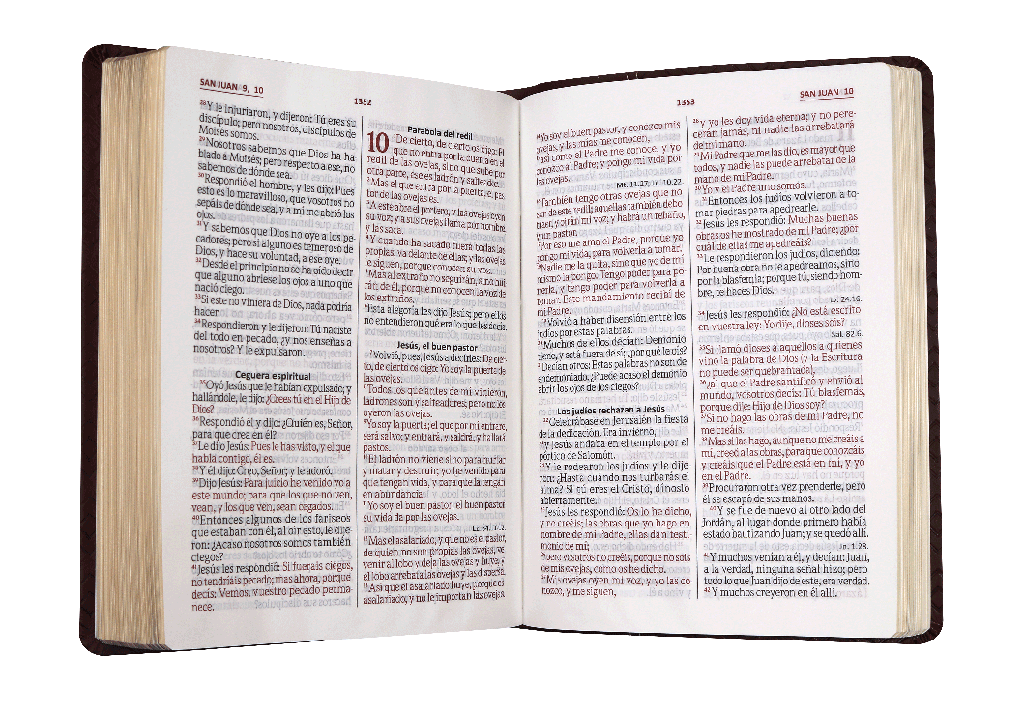 SAN JUAN 9, 10
1352
28Y le injuriaron, y dijeron: Tú eres su
discípulo; pero nosotros, discípulos de
Moisés somos.
29Nosotros sabemos que Dios ha ha-
blado a Moisés; pero respecto a ese, no
sabemos de dónde sea.
30Respondió el hombre, y les dijo: Pues
esto es lo maravilloso, que vosotros no
sepáis de dónde sea, y a mí me abrió los
ojos.
31Y sabemos que Dios no oye a los pe-
cadores; pero si alguno es temeroso de
Dios, y hace su voluntad, a ese oye.
32Desde el principio no se ha oído decir
que alguno abriese los ojos a uno que
nació ciego.
33Si este no viniera de Dios, nada podría
hacer
34Respondieron y le dijeron: Tú naciste
del todo en pecado, ¿y nos enseñas a
nosotros? Y le expulsaron.
Ceguera espiritual
35Oyó Jesús que le habían expulsado; y
hallándole, le dijo: ¿Crees tú en el Hijo de
Dios?
36Respondió él y dijo: ¿Quién es, Señor,
para que crea en él?
37Le dijo Jesús: Pues le has visto, y el que
habla contigo, él es.
38Y él dijo: Creo, Señor; y le adoró.
39Dijo Jesús: Para juicio he venido yo a
este mundo; para que los que no ven,
vean, y los que ven, sean cegados.
40Entonces algunos de los fariseos
que estaban con él, al oír esto, le dije-
ron: ¿Acaso nosotros somos también
ciegos?
41Jesús les respondió: Si fuerais ciegos,
no tendríais pecado; mas ahora, porque
decís: Vemos, vuestro pecado perma-
nece.
Parábola del redil
10 De cierto, de cierto os digo: El
que no entra por la puerta en el
redil de las ovejas, sino que sube por
otra parte, ese es ladrón y salteador.
2Mas el que entra por la puerta, el pas-
tor de las ovejas es.
3A este abre el portero, y las ovejas oyen
su voz; y a sus ovejas llama por nombre,
y las saca.
4Y cuando ha sacado fuera todas las
propias, va delante de ellas; y las ovejas
le siguen, porque conocen su voz.
5Mas al extraño no seguirán, sino hui-
rán de él, porque no conocen la voz de
los extraños.
6Esta alegoría les dijo Jesús; pero ellos
no entendieron qué era lo que les decía.
Jesús, el buen pastor
7Volvió, pues, Jesús a decirles: De cier-
to, de cierto os digo: Yo soy la puerta de
las ovejas.
8Todos los que antes de mí vinieron,
ladrones son y salteadores; pero no los
oyeron las ovejas.
9Yo soy la puerta; el que por mí entrare,
será salvo; y entrará, y saldrá, y hallará
pastos.
10El ladrón no viene sino para hurtar
y matar y destruir; yo he venido para
que tengan vida, y para que la tengan
en abundancia.
11Yo soy el buen pastor; el buen pastor
su vida da por las ovejas.
12Mas el asalariado, y que no es el pastor,
de quien no son propias las ovejas, ve
venir al lobo y deja las ovejas y huye, y
el lobo arrebata las ovejas y las dispersa.
13Así que el asalariado huye, porque es
asalariado, y no le importan las ovejas.
1353
SAN JUAN 10
14Yo soy el buen pastor; y conozco mis
ovejas, y las mías me conocen,
15así como el Padre me conoce, y yo
conozco al Padre; y pongo mi vida por
las ovejas.
Mt. 11.27; 10.22.
16También tengo otras ovejas que no
son de este redil; aquellas también debo
traer, y oirán mi voz; y habrá un rebaño,
y un pastor.
17Por eso me ama el Padre, porque yo
pongo mi vida, para volverla a tomar.
18Nadie me la quita, sino que yo de mí
mismo la pongo. Tengo poder para po-
nerla, y tengo poder para volverla a
tomar. Este mandamiento recibí de
mi Padre.
19Volvió a haber disensión entre los
judíos por estas palabras.
20Muchos de ellos decían: Demonio
tiene, y está fuera de sí; ¿por qué le oís?
21Decían otros: Estas palabras no son de
endemoniado. ¿Puede acaso el demonio
abrir los ojos de los ciegos?
Los judíos rechazan a Jesús
22Celebrábase en Jerusalén la fiesta
de la dedicación. Era invierno,
23y Jesús andaba en el templo por el
pórtico de Salomón.
24Y le rodearon los judíos y le dije-
ron: ¿Hasta cuándo nos turbarás el
alma? Si tú eres el Cristo, dínoslo
abiertamente.
25Jesús les respondió: Os lo he dicho,
y no creéis; las obras que yo hago en
nombre de mi Padre, ellas dan testi-
monio de mí;
26pero vosotros no creéis, porque no sois
de mis ovejas, como os he dicho.
27Mis ovejas oyen mi voz, y yo las co-
nozco, y me siguen,
28y yo les doy vida eterna; y no pere-
cerán jamás, ni nadie las arrebatará
de mi mano.
29Mi Padre que me las dio, es mayor que
todos, y nadie las puede arrebatar de la
mano de mi Padre.
30Yo y el Padre uno somos.
31Entonces los judíos volvieron a to-
mar piedras para apedrearle.
32Jesús les respondió: Muchas buenas
obras os he mostrado de mi Padre; ¿por
cuál de ellas me apedreáis?
33Le respondieron los judíos, diciendo:
Por buena obra no te apedreamos, sino
por la blasfemia; porque tú, siendo hom-
bre, te haces Dios.
Lv. 24.16.
34Jesús les respondió: ¿No está escrito
en vuestra ley: Yo dije, dioses sois?
Sal. 82.6.
35Si llamó dioses a aquellos a quienes
vino la palabra de Dios (y la Escritura
no puede ser quebrantada),
36¿al que el Padre santificó y envió al
mundo, vosotros decís: Tú blasfemas,
porque dije: Hijo de Dios soy?
37Si no hago las obras de mi Padre, no
me creáis.
38Mas si las hago, aunque no me creáis a
mí, creed a las obras, para que conozcáis
y creáis que el Padre está en mí, y yo
en el Padre.
39Procuraron otra vez prenderle, pero
él se escapó de sus manos.
40Y se fue de nuevo al otro lado del
Jordán, al lugar donde primero había
estado bautizando Juan; y se quedó allí.
Jn. 1.28.
41Y muchos venían a él, y decían: Juan,
a la verdad, ninguna señal hizo; pero
todo lo que Juan dijo de este, era verdad.
42Y muchos creyeron en él allí.